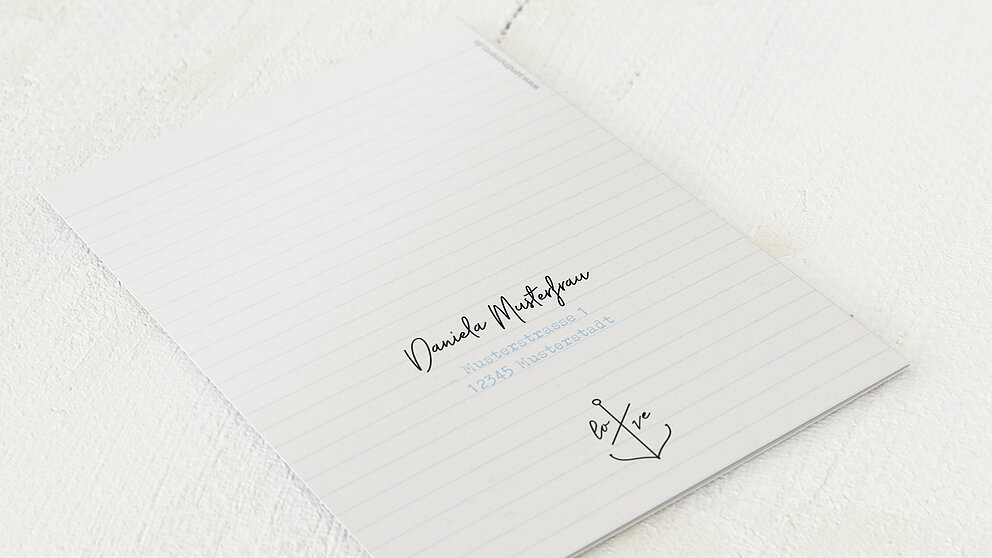 Daniela Musterfrau
Musterstrasse 1
12345 Musterstadt
lo ve